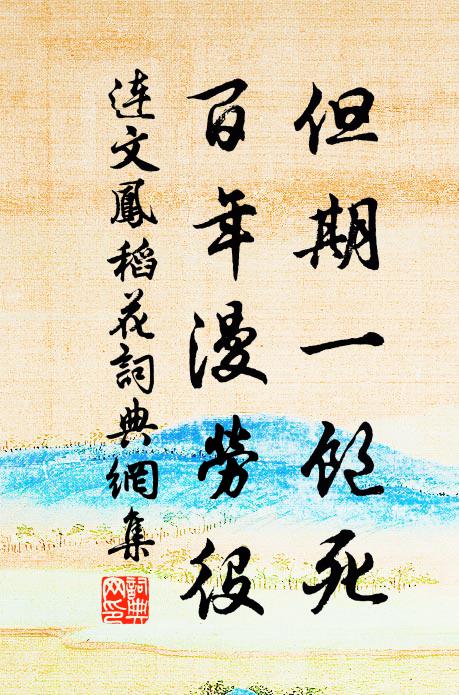 但期一飽死
百年漫勞役
連文鳳稻花詞典網集